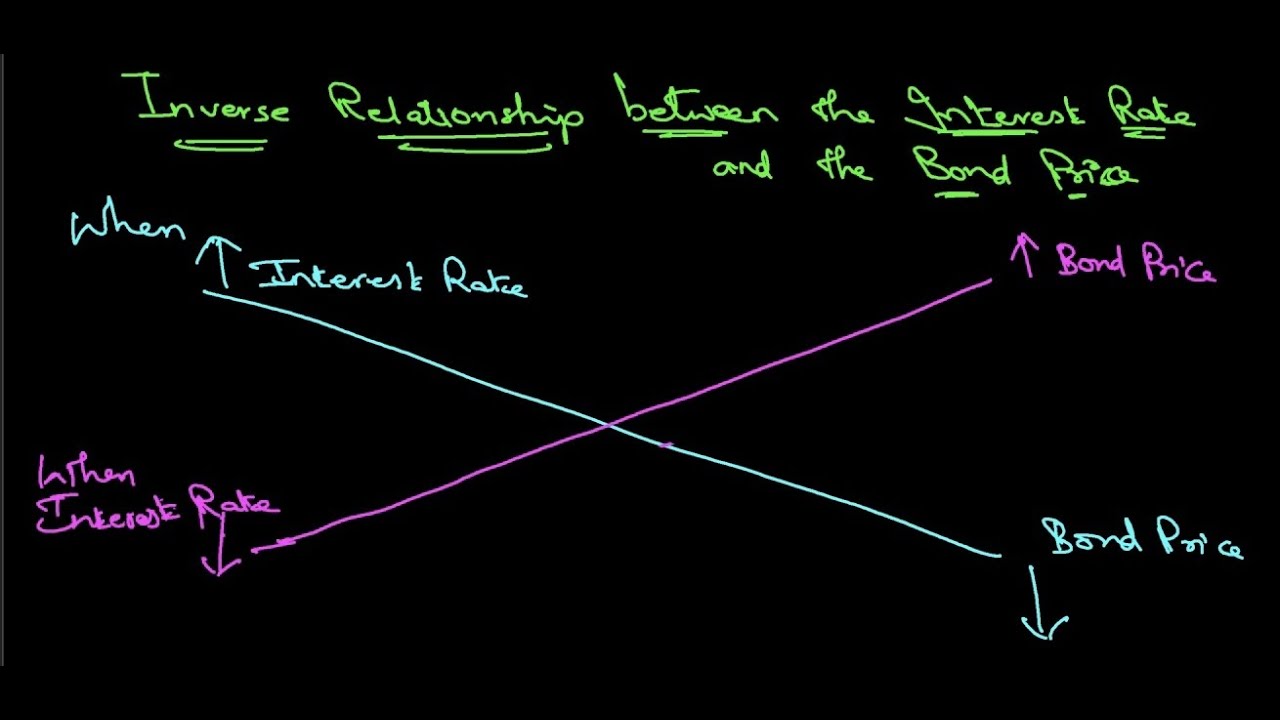 Inverse Relationship between the Interest Rate
and the Bond Price
When
↑ Interest Rate
↑ Bond Price
When
Interest Rate
↓
Bond Price
↓